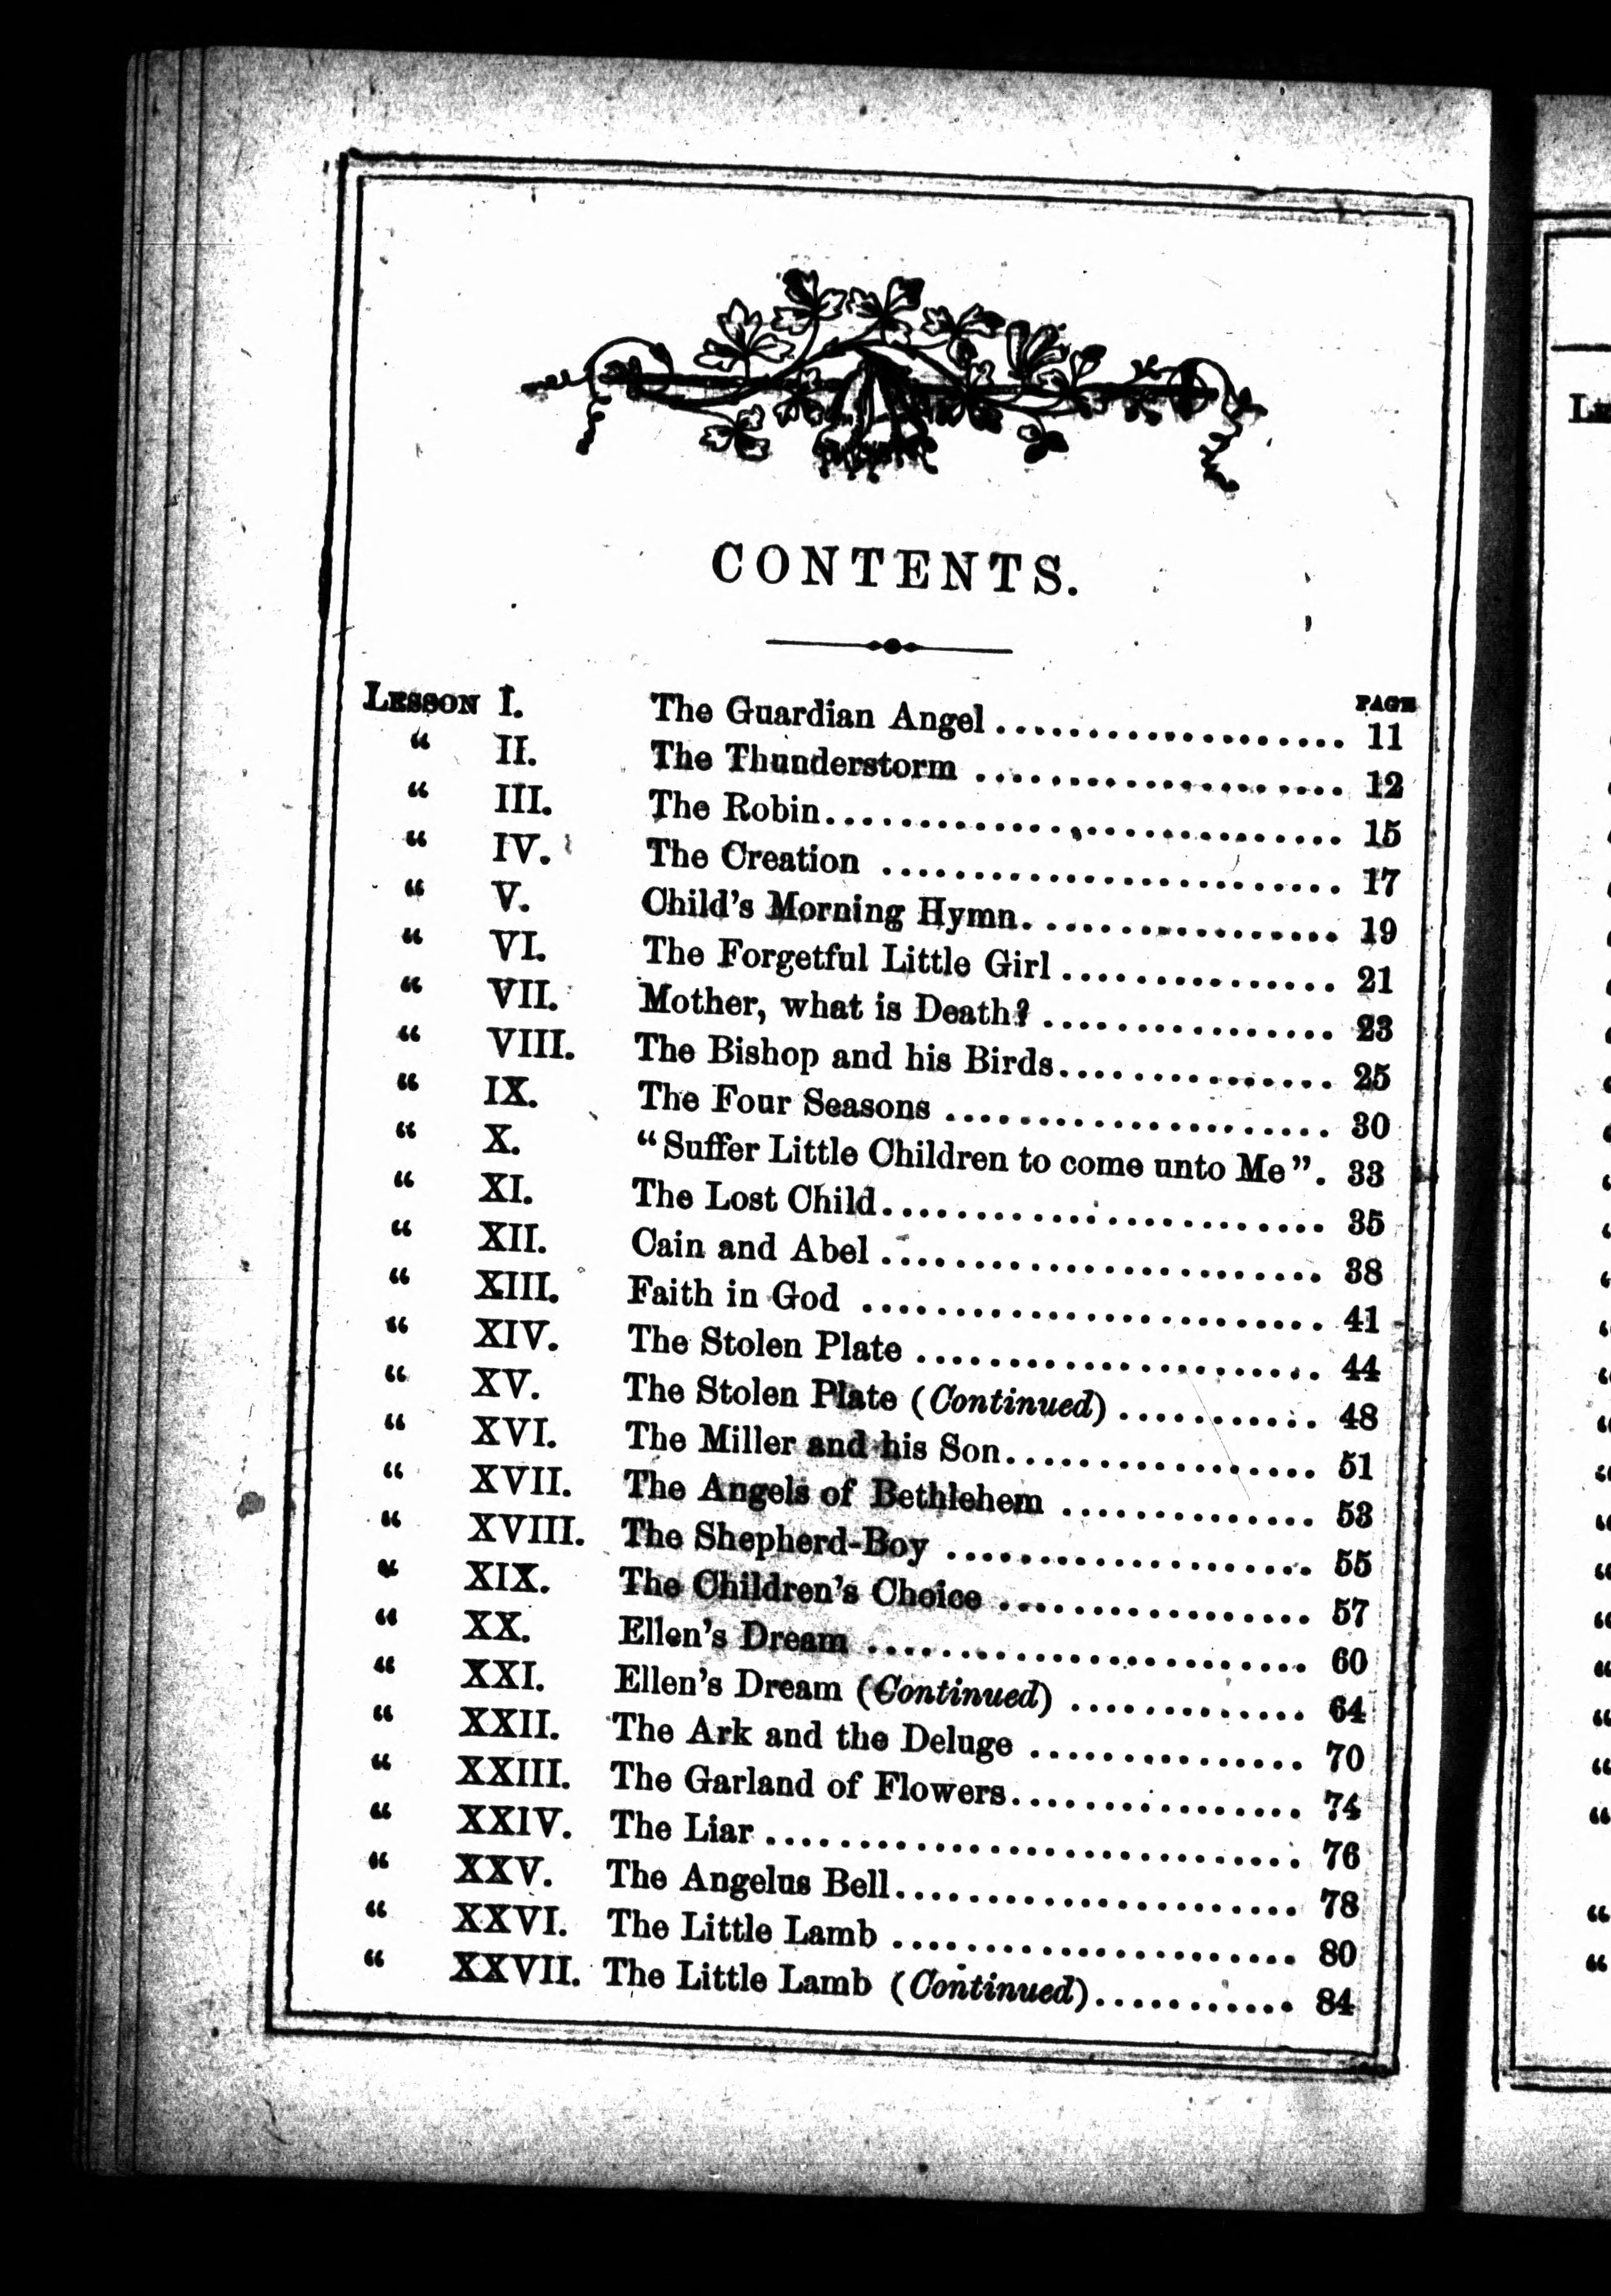 CONTENTS.
PAGE
LESSON I. The Guardian Angel ................... 11
“ II. The Thunderstorm .................... 12
“ III. The Robin............................ 15
“ IV. The Creation ......................... 17
“ V. Child’s Morning Hymn................. 19
“ VI. The Forgetful Little Girl ............... 21
“ VII. Mother, what is Death? ................ 23
“ VIII. The Bishop and his Birds............... 25
“ IX. The Four Seasons ..................... 30
“ X. “Suffer Little Children to come unto Me”. 33
“ XI. The Lost Child........................ 35
“ XII. Cain and Abel ........................ 38
“ XIII. Faith in God ......................... 41
“ XIV. The Stolen Plate ...................... 44
“ XV. The Stolen Plate (Continued) ........... 48
“ XVI. The Miller and his Son................. 51
“ XVII. The Angels of Bethlehem .............. 53
“ XVIII. The Shepherd-Boy .................... 55
“ XIX. The Children’s Choice ................. 57
“ XX. Ellen’s Dream ........................ 60
“ XXI. Ellen’s Dream (Continued) ............. 64
“ XXII. The Ark and the Deluge ............... 70
“ XXIII. The Garland of Flowers................ 74
“ XXIV. The Liar ............................. 76
“ XXV. The Angelus Bell...................... 78
“ XXVI. The Little Lamb ...................... 80
“ XXVII. The Little Lamb (Continued)........... 84